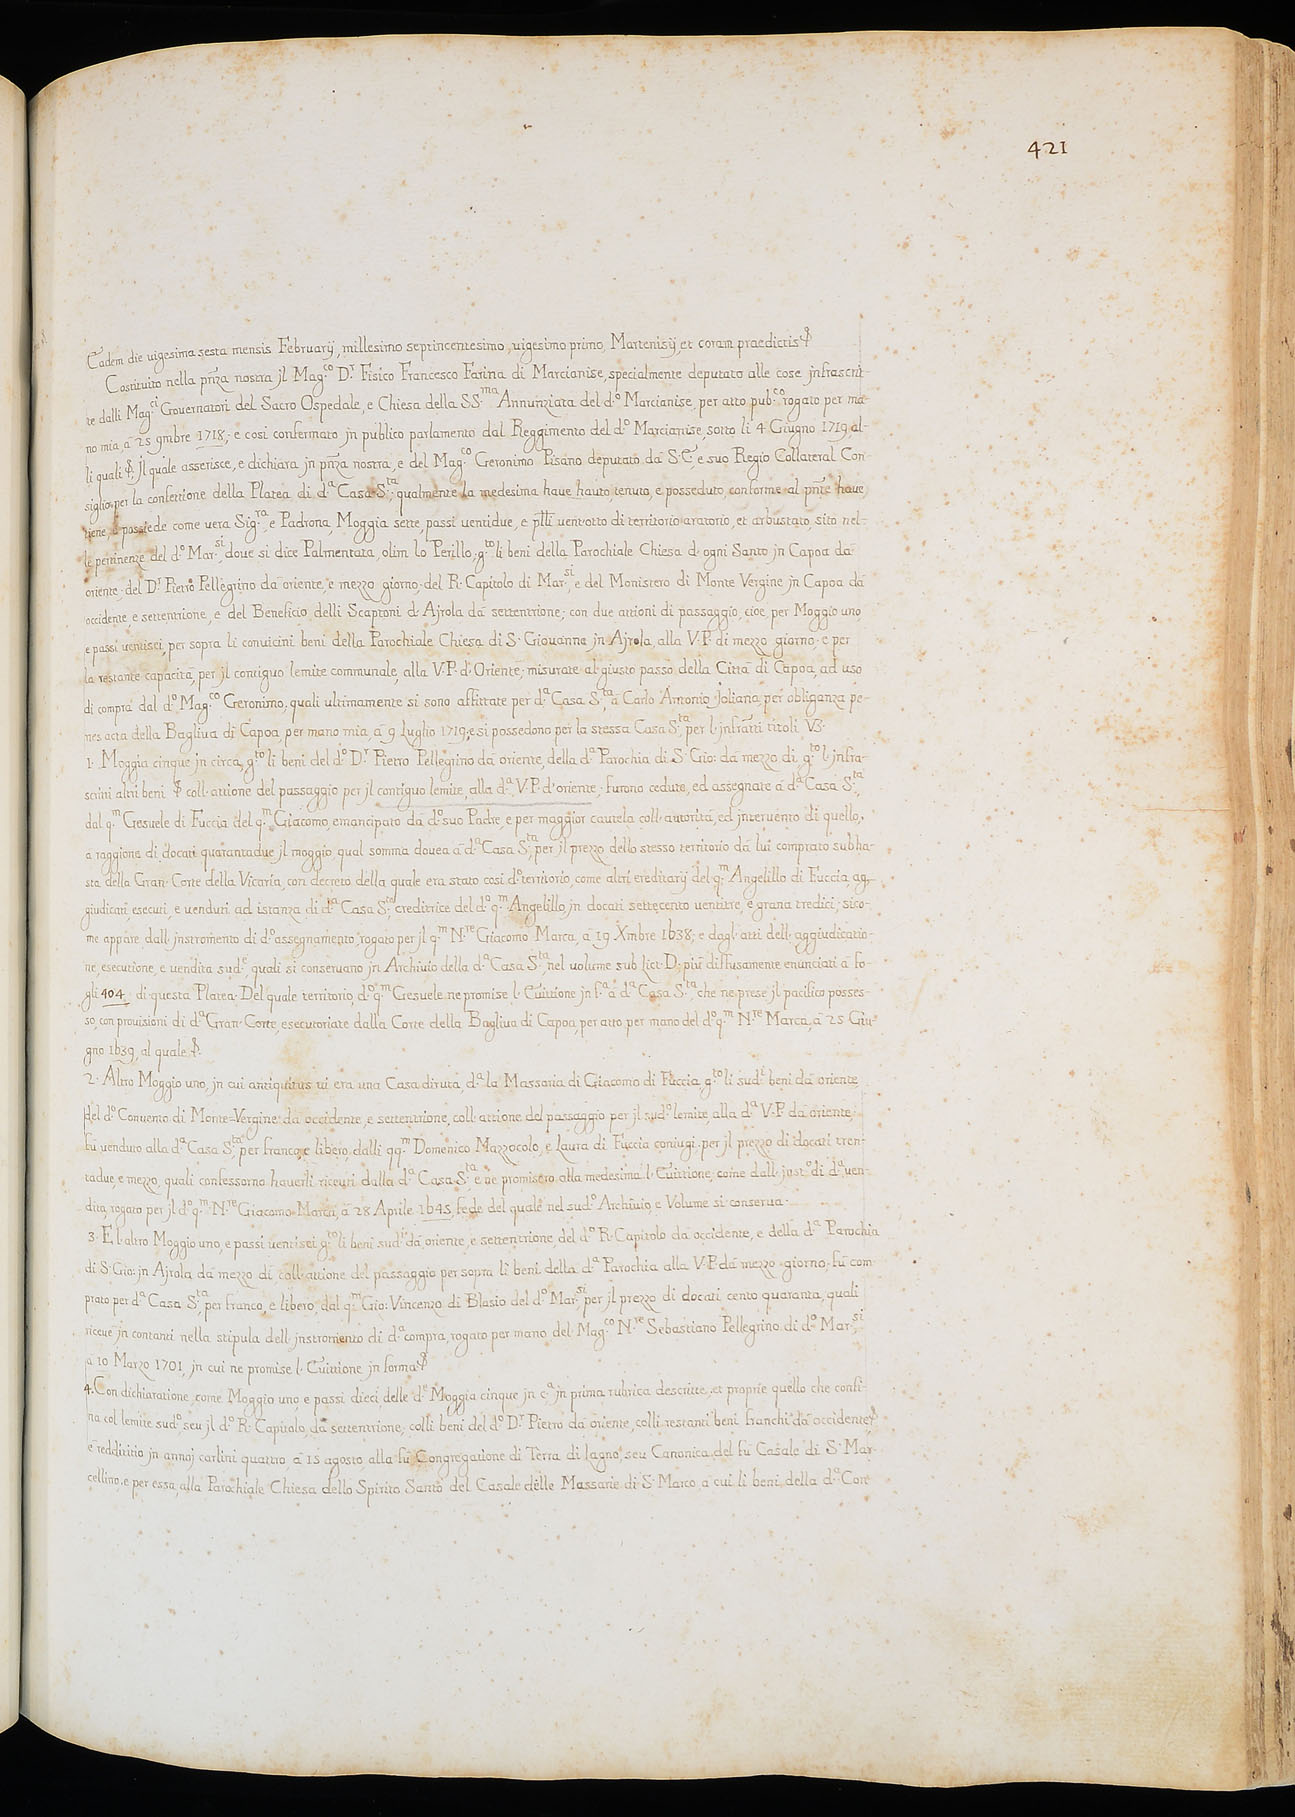 421
Eadem die uigesima sesta mensis Februarij, millesimo septincentesimo, uigesimo primo, Martenisij, et coram praedictis
Costituito nella pñza nostra jl Mag.co D.r Fisico Francesco Farina di Marcianise, specialmente deputato alle cose jnfrascrit-
te dalli Mag.ci Gouernatori del Sacro Ospedale, e Chiesa della SS.ma Annunziata del d.o Marcianise, per atto pub.co rogato per ma-
no mia, à 25 9mbre 1718; e cosi confermato jn publico parlamento dal Reggimento del d.o Marcianise, sotto li 4 Giugno 1719, al-
li quali &. Jl quale asserisce, e dichiara jn pñza nostra, e del Mag.co Geronimo Pisano deputato dà S. E. e suo Regio Collateral Con-
siglio, per la confettione della Platea di d.a Casa S.ta; qualmente la medesima haue hauto, tenuto, e posseduto, conforme al pñte haue
tiene, e possede come uera Sig.ra e Padrona, Moggia sette, passi uentidue, e p̃tti uentotto di territorio aratorio, et arbustato, sito nel-
le pertinenze del d.o Mar.si, doue si dice Palmentata, olim lo Perillo, g.to li beni della Parochiale Chiesa d'ogni Santo jn Capoa dà
oriente; del D.r Pietro Pellegrino dà oriente, e mezzo giorno; del R. Capitolo di Mar.si, e del Monistero di Monte Vergine jn Capoa dà
occidente, e settentrione, e del Beneficio delli Scaptoni d'Ajrola dà settentrione; con due attioni di passaggio, cioè, per Moggio uno,
e passi uentisei, per sopra li conuicini beni della Parochiale Chiesa di S. Giouanne jn Ajrola, alla V.P. di mezzo giorno; e per
la restante capacità, per jl contiguo lemite communale, alla V.P. d'Oriente; misurate al giusto passo della Città di Capoa, ad uso
di compra dal d.o Mag.co Geronimo; quali ultimamente si sono affittate per d.a Casa S.ta à Carlo Antonio Joliano, per obliganza pe-
nes acta della Bagliua di Capoa, per mano mia, à 9 Luglio 1719; e si possedono per la stessa Casa S.ta per l'jnfratti titoli V3.
1. Moggia cinque jn circa, g.to li beni del d.o D.r Pietro Pellegrino dà oriente, della d.a Parochia di S. Gio: dà mezzo dì, g.to l'jnfra-
scritti altri beni & coll'attione del passaggio per jl contiguo lemite, alla d.a V.P. d'oriente; furono cedute, ed assegnate à d.a Casa S.ta,
dal q.m Gesuele di Fuccia del q.m Giacomo, emancipato dà d.o suo Padre, e per maggior cautela coll'autorità, ed jnteruento di quello,
à raggione di docati quarantadue jl moggio, qual somma douea à d.a Casa S.ta, per jl prezzo dello stesso territorio dà lui comprato subha-
sta della Gran Corte della Vicaria, con decreto della quale era stato cosi d.o territorio, come altri ereditarij del q.m Angelillo di Fuccia, ag-
giudicati, esecuti, e uenduti ad istanza di d.a Casa S.ta, creditrice del d.o q.m Angelillo, jn docati settecento uentitre, e grana tredici; sico-
me appare dall'jnstromento di d.o assegnamento, rogato per jl q.m N.re Giacomo Marca, à 19 Xmbre 1638; e dagl'atti dell'aggiudicatio-
ne, esecutione, e uendita sud.e, quali si conseruano jn Archiuio della d.a Casa S.ta, nel uolume sub lict. D. più diffusamente enunciati à fo-
gli 404 di questa Platea. Del quale territorio, d.o q.m Gesuele ne promise l'Euittione jn f.a à d.a Casa S.ta, che ne prese jl pacifico posses-
so, con prouisioni di d.a Gran Corte, esecutoriate dalla Corte della Bagliua di Capoa, per atto per mano del d.o q.m N.re Marca, à 25 Giu-
gno 1639, al quale &.
2. Altro Moggio uno, jn cui antiquitus ui era una Casa diruta, d.a la Massaria di Giacomo di Fuccia, g.to li sud.i beni dà oriente,
del d.o Conuento di Monte=Vergine dà occidente, e settentrione, coll'attione del passaggio per jl sud.o lemite, alla d.a V.P. dà oriente;
fù uenduto alla d.a Casa S.ta per franco, e libero, dalli qq.m Domenico Mazzocolo, e Laura di Fuccia coniugi, per jl prezzo di docati tren-
tadue, e mezzo, quali confessorno hauerli riceuti dalla d.a Casa S.ta, e ne promisero alla medesima l'Euittione, come dall'just.o di d.a uen-
dita, rogato per jl d.o q.m N.re Giacomo Marca, à 28 Aprile 1645, fede del quale nel sud.o Archiuio, e Volume si conserua.
3. E l'altro Moggio uno, e passi uentisei, g.to li beni sud.i dà oriente, e settentrione, del d.o R. Capitolo dà occidente, e della d.a Parochia
di S. Gio: jn Ajrola dà mezzo dì, coll'attione del passaggio per sopra li beni della d.a Parochia alla V.P. dà mezzo giorno; fù com-
prato per d.a Casa S.ta, per franco, e libero, dal q.m Gio: Vincenzo di Blasio del d.o Mar.si per jl prezzo di docati cento quaranta, quali
riceuè jn contanti nella stipula dell'jnstromento di d.a compra, rogato per mano del Mag.co N.re Sebastiano Pellegrino di d.o Mar.si
à 10 Marzo 1701, jn cui ne promise l'Euittione jn forma &
4. Con dichiaratione, come Moggio uno e passi dieci delle d.e Moggia cinque jn c.a jn prima rubrica descritte, et proprie quello che confi-
na col lemite sud.o seu jl d.o R. Capitolo, dà settentrione; colli beni del d.o D.r Pietro dà oriente, colli restanti beni franchi dà occidente &
è reddititio jn annoj carlini quattro, à 15 agosto alla fù Congregatione di Terra di lagno, seu Canonica del fù Casale di S. Mar-
cellino, e per essa, alla Parochiale Chiesa dello Spirito Santo del Casale delle Massarie di S. Marco, à cui li beni della d.a Con-